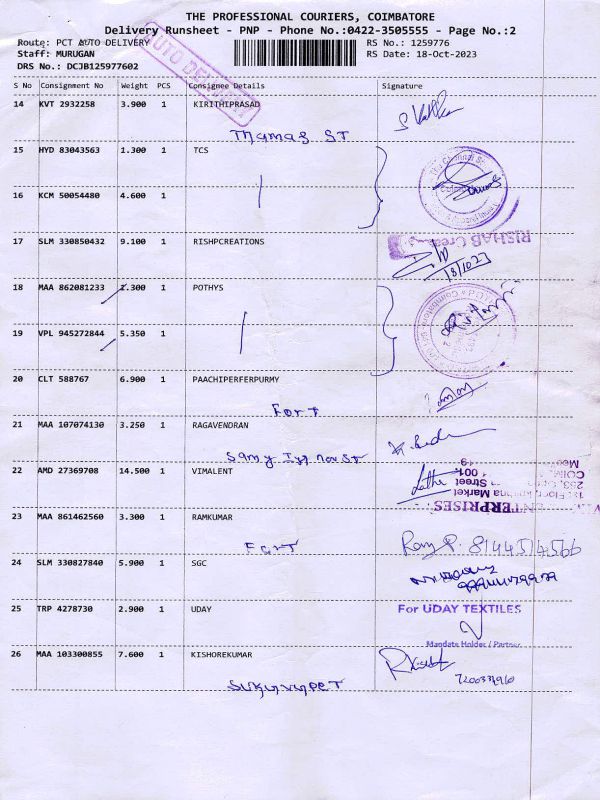 THE PROFESSIONAL COURIERS, COIMBATORE
Delivery Runsheet - PNP - Phone No.:0422-3505555 - Page No.:2
Route: PCT AUTO DELIVERY RS No.: 1259776
Staff: MURUGAN RS Date: 18-Oct-2023
DRS No.: DCJB125977602
AUTO DELIVERY
S No Consignment No Weight PCS Consignee Details Signature
14 KVT 2932258 3.900 1 KIRITHIPRASAD
Thamas ST
15 HYD 83043563 1.300 1 TCS
16 KCM 50054480 4.600 1
17 SLM 330850432 9.100 1 RISHPCREATIONS
RISHAB Crea
18/10/23
18 MAA 862081233 1.300 1 POTHYS
19 VPL 945272844 5.350 1
20 CLT 588767 6.900 1 PAACHIPERFERPURMY
Fort
21 MAA 107074130 3.250 1 RAGAVENDRAN
Samy Iyer nov ST
22 AMD 27369708 14.500 1 VIMALENT
ENTERPRISES
23 MAA 861462560 3.300 1 RAMKUMAR
Fort
24 SLM 330827840 5.900 1 SGC
25 TRP 4278730 2.900 1 UDAY
For UDAY TEXTILES
Mandate Holder / Partner
26 MAA 103300855 7.600 1 KISHOREKUMAR
Sukurvarpet